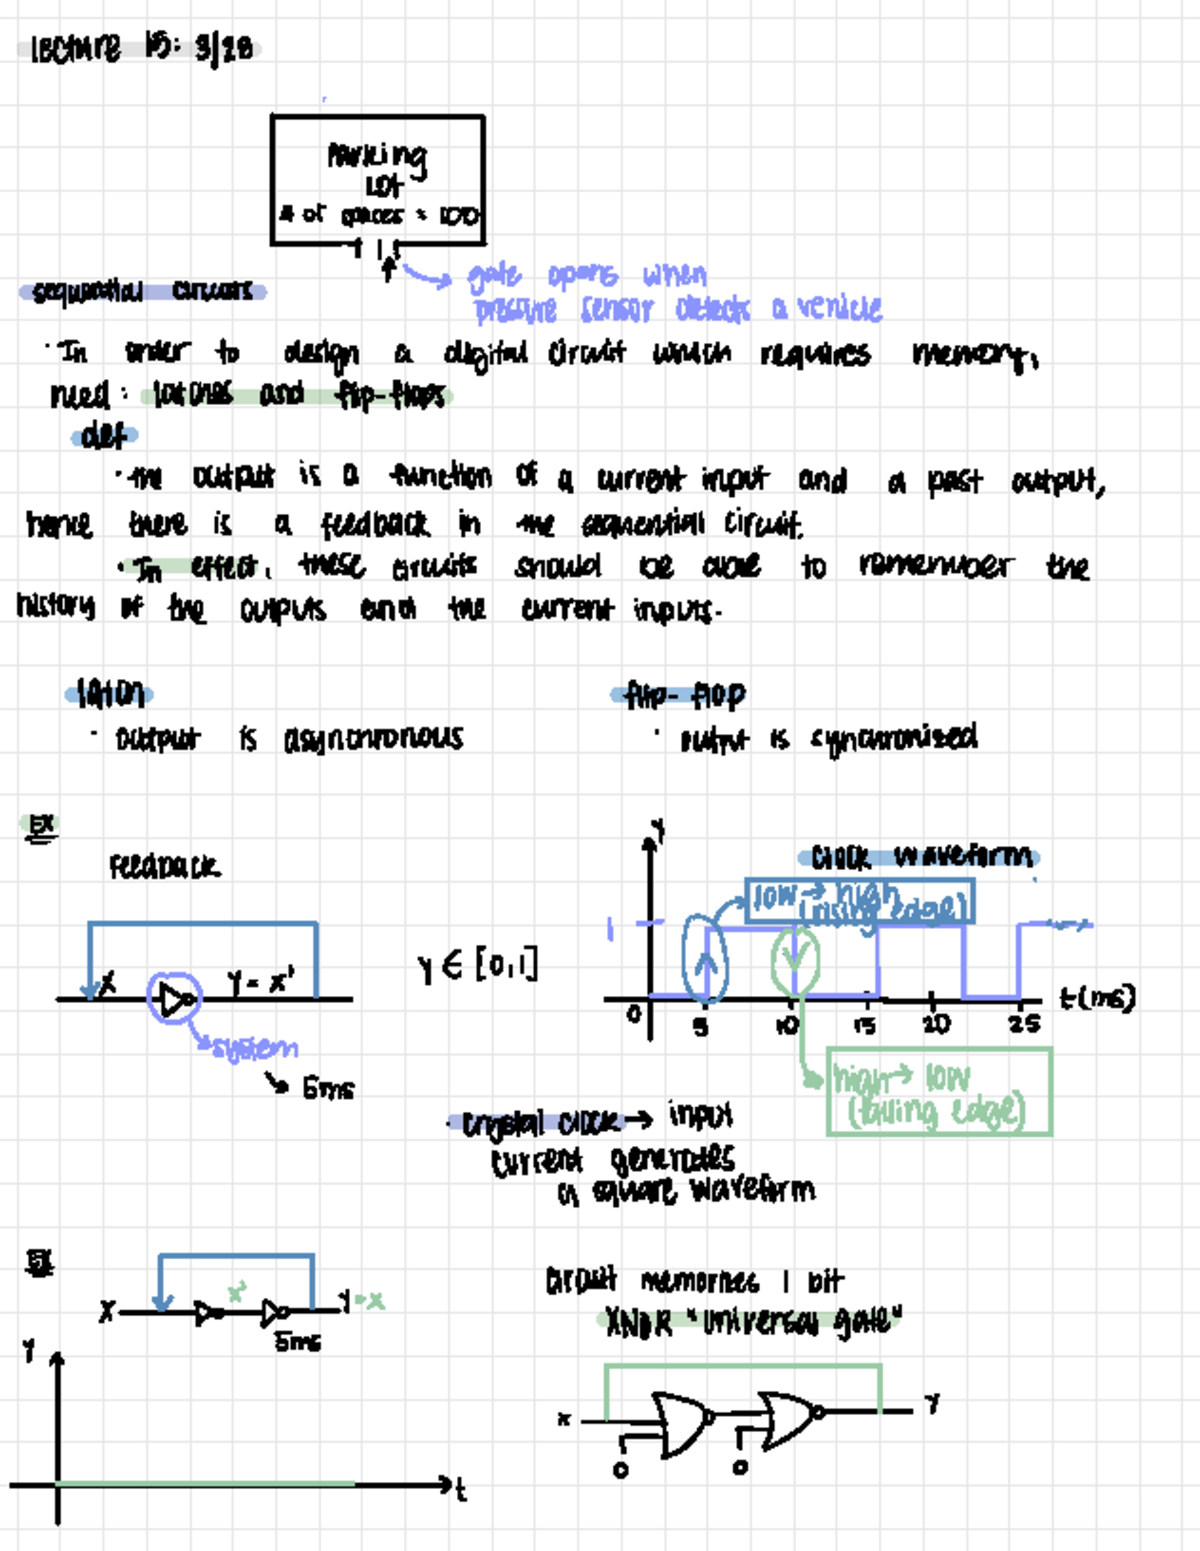 lecture 15: 3/28
Parking
Lot
# of spaces = 100
gate opens when
pressure sensor detects a vehicle
sequential circuits
· In order to design a digital circuit which requires memory,
need: latches and flip-flops
def
· the output is a function of a current input and a past output,
hence there is a feedback in the sequential circuit.
· In effect, these circuits should be able to remember the
history of the outputs and the current inputs.
latch
· output is asynchronous
flip-flop
· output is synchronized
EX
Feedback
X
Y = X'
system
5ms
Y ∈ [0,1]
Y
clock waveform
low → high
(rising edge)
1
0
5
10
15
20
25
t(ms)
high → low
(falling edge)
· crystal clock → input
current generates
a square waveform
EX
X
X'
Y = X
5ms
Y
t
circuit memorizes 1 bit
XNOR "universal gate"
x
0
0
Y